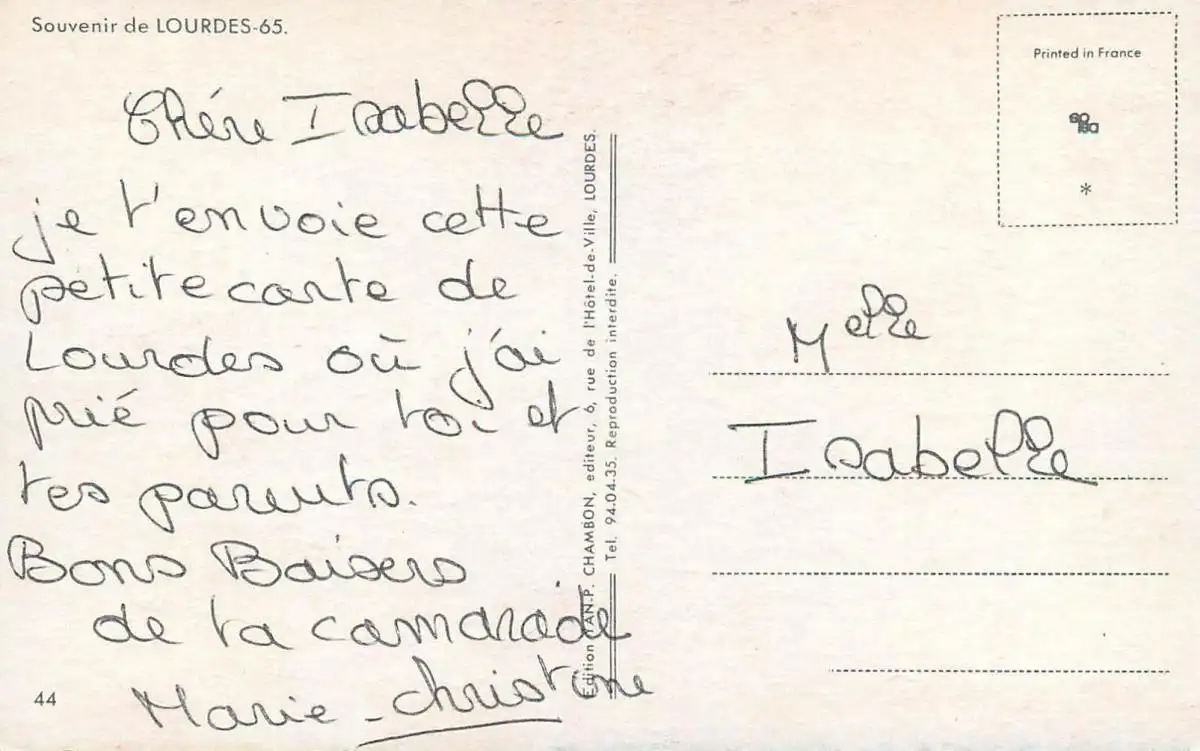 Souvenir de LOURDES-65.
Chére Isabelle
je t'envoie cette
petite carte de
Lourdes où j'ai
prié pour toi et
tes parents.
Bons Baisers
de ta camarade
Marie-christine
44
Édition JEAN-P. CHAMBON, editeur, 6, rue de l'Hôtel-de-Ville, LOURDES.
Tel. 94.04.35. Reproduction interdite.
Printed in France
*
Melle
Isabelle